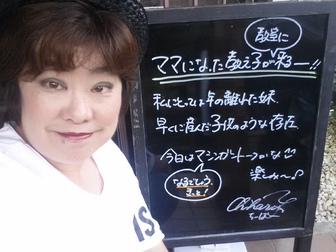 教室に
ママになった教え子が来るー!!
私にとっては年の離れた妹、
早くに産んだ子供のような存在
今日はマシンガントークかな
なるでしょう、
きっと!
楽しみ〜♪
ちーぼー
IS